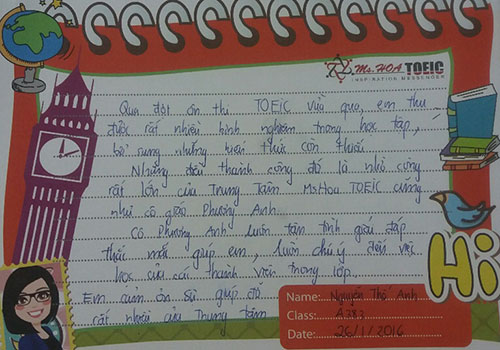 Ms. HOA TOEIC
INSPIRATION MESSENGER
Qua đợt ôn thi TOEIC vừa qua, em thu
được rất nhiều kinh nghiệm trong học tập,
bổ sung những kiến thức còn thiếu.
Những điều thành công đó là nhờ công
rất lớn của Trung Tâm MsHoa TOEIC cũng
như cô giáo Phương Anh.
Cô Phương Anh luôn tận tình giải đáp
thắc mắc giúp em, luôn chú ý đến việc
học của các thành viên trong lớp.
Em cảm ơn sự giúp đỡ
rất nhiều của Trung tâm
Hi
Name: Nguyễn Thị Anh
Class: A383
Date: 26/1/2016